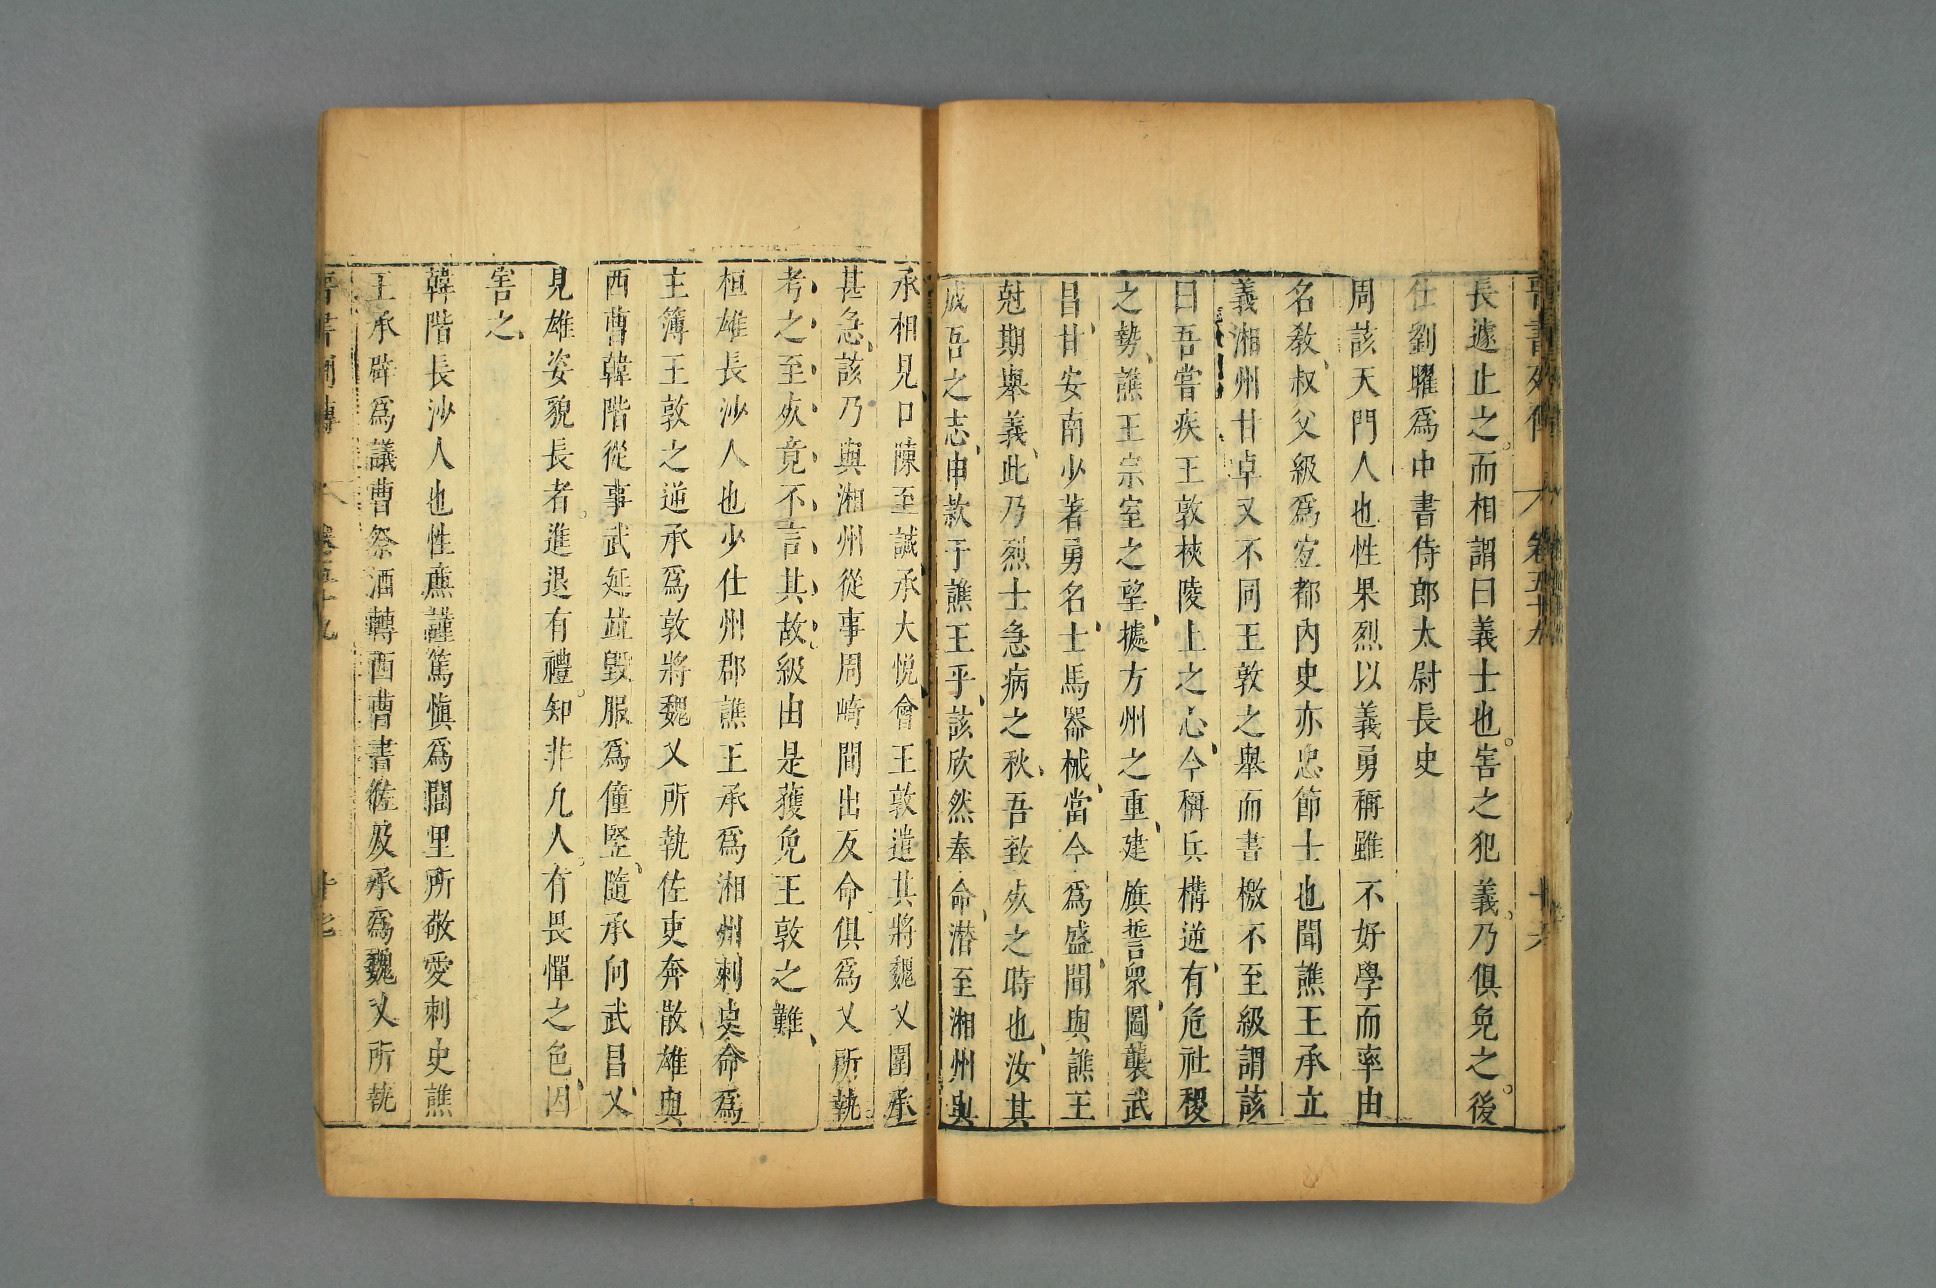 晉書列傳 卷五十九 十六
長遽止之而相謂曰義士也害之犯義乃俱免之後
仕劉曜爲中書侍郎太尉長史
周該天門人也性果烈以義勇稱雖不好學而率由
名敎叔父級爲宜都內史亦忠節士也聞譙王承立
義湘州甘卓又不同王敦之舉而書檄不至級謂該
曰吾嘗疾王敦挾陵上之心今稱兵構逆有危社稷
之勢譙王宗室之望據方州之重建旗誓衆圖襲武
昌甘安南少著勇名士馬器械當今爲盛聞與譙王
尅期舉義此乃烈士急病之秋吾致死之時也汝其
成吾之志申款于譙王乎該欣然奉命潛至湘州與
承相見口陳至誠承大悅會王敦遣其將魏乂圍承
甚急該乃與湘州從事周崎間出反命俱爲乂所執
考之至死竟不言其故級由是獲免王敦之難
桓雄長沙人也少仕州郡譙王承爲湘州刺史命爲
主簿王敦之逆承爲敦將魏乂所執佐吏奔散雄與
西曹韓階從事武延並毀服爲僮豎隨承向武昌乂
見雄姿貌長者進退有禮知非凡人有畏憚之色因
害之
韓階長沙人也性廉謹篤愼爲閭里所敬愛刺史譙
王承辟爲議曹祭酒轉西曹書佐及承爲魏乂所執
晉書列傳 卷五十九 十七